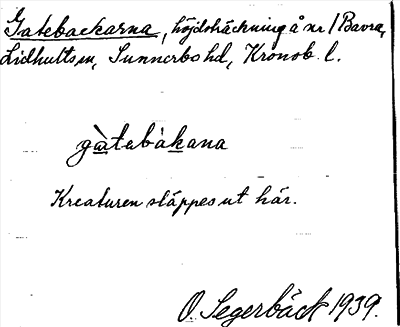 Gatebackarna, höjdsträckning å nr 1 Bavra,
Lidhults sn, Sunnerbo hd, Kronob. l.
gàtebàkana
Kreaturen släppes ut här.
O. Segerbäck 1939.